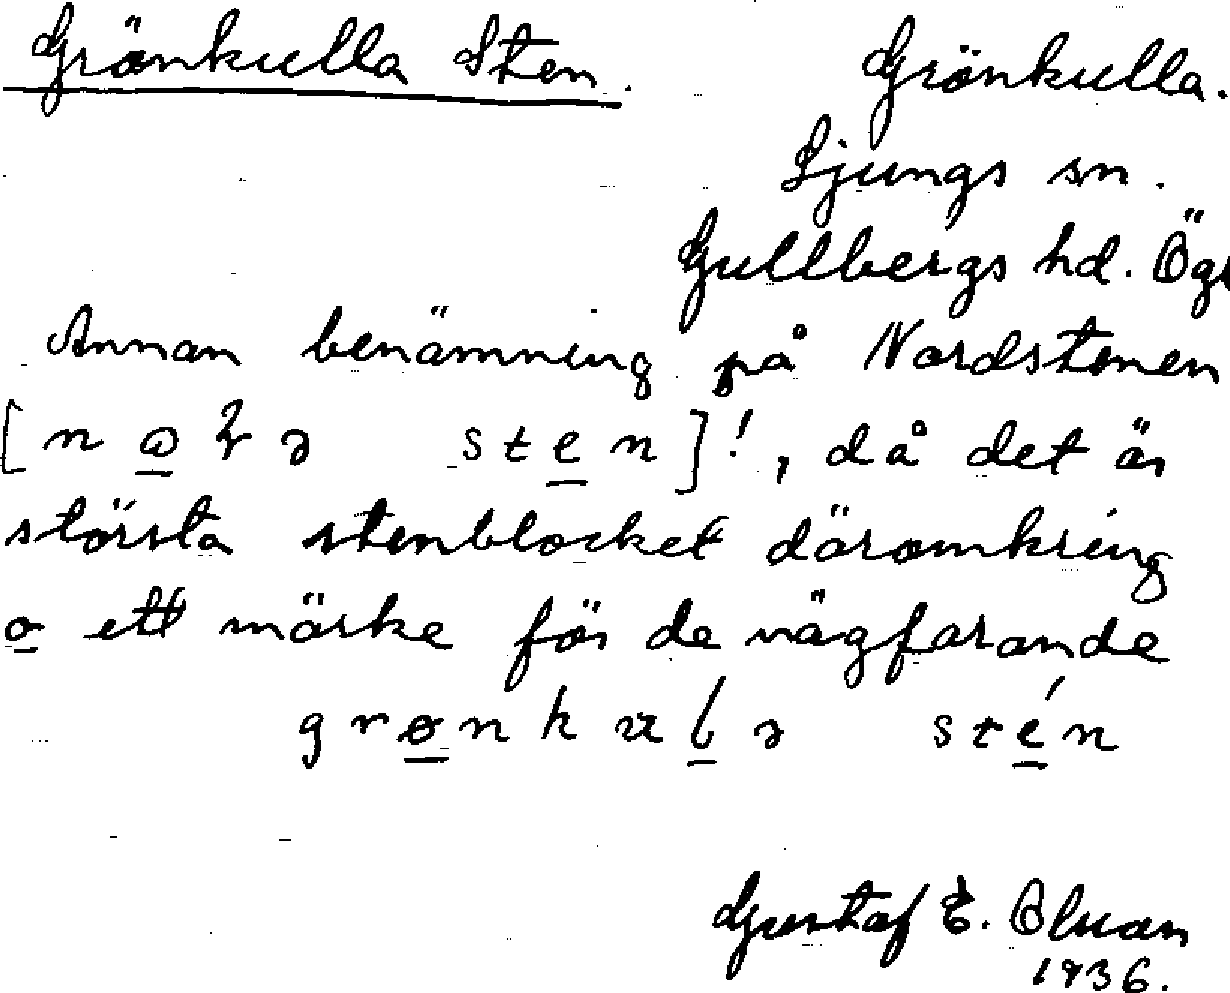 Grönkulla Sten. Grönkulla.
Ljungs sn.
Gullbergs hd. Ög
Annan benämning på Nordstenen
sten]!, då det är
största stenblocket däromkring
o ett märke för de vägfarande
stén
Gustaf E.
1936.